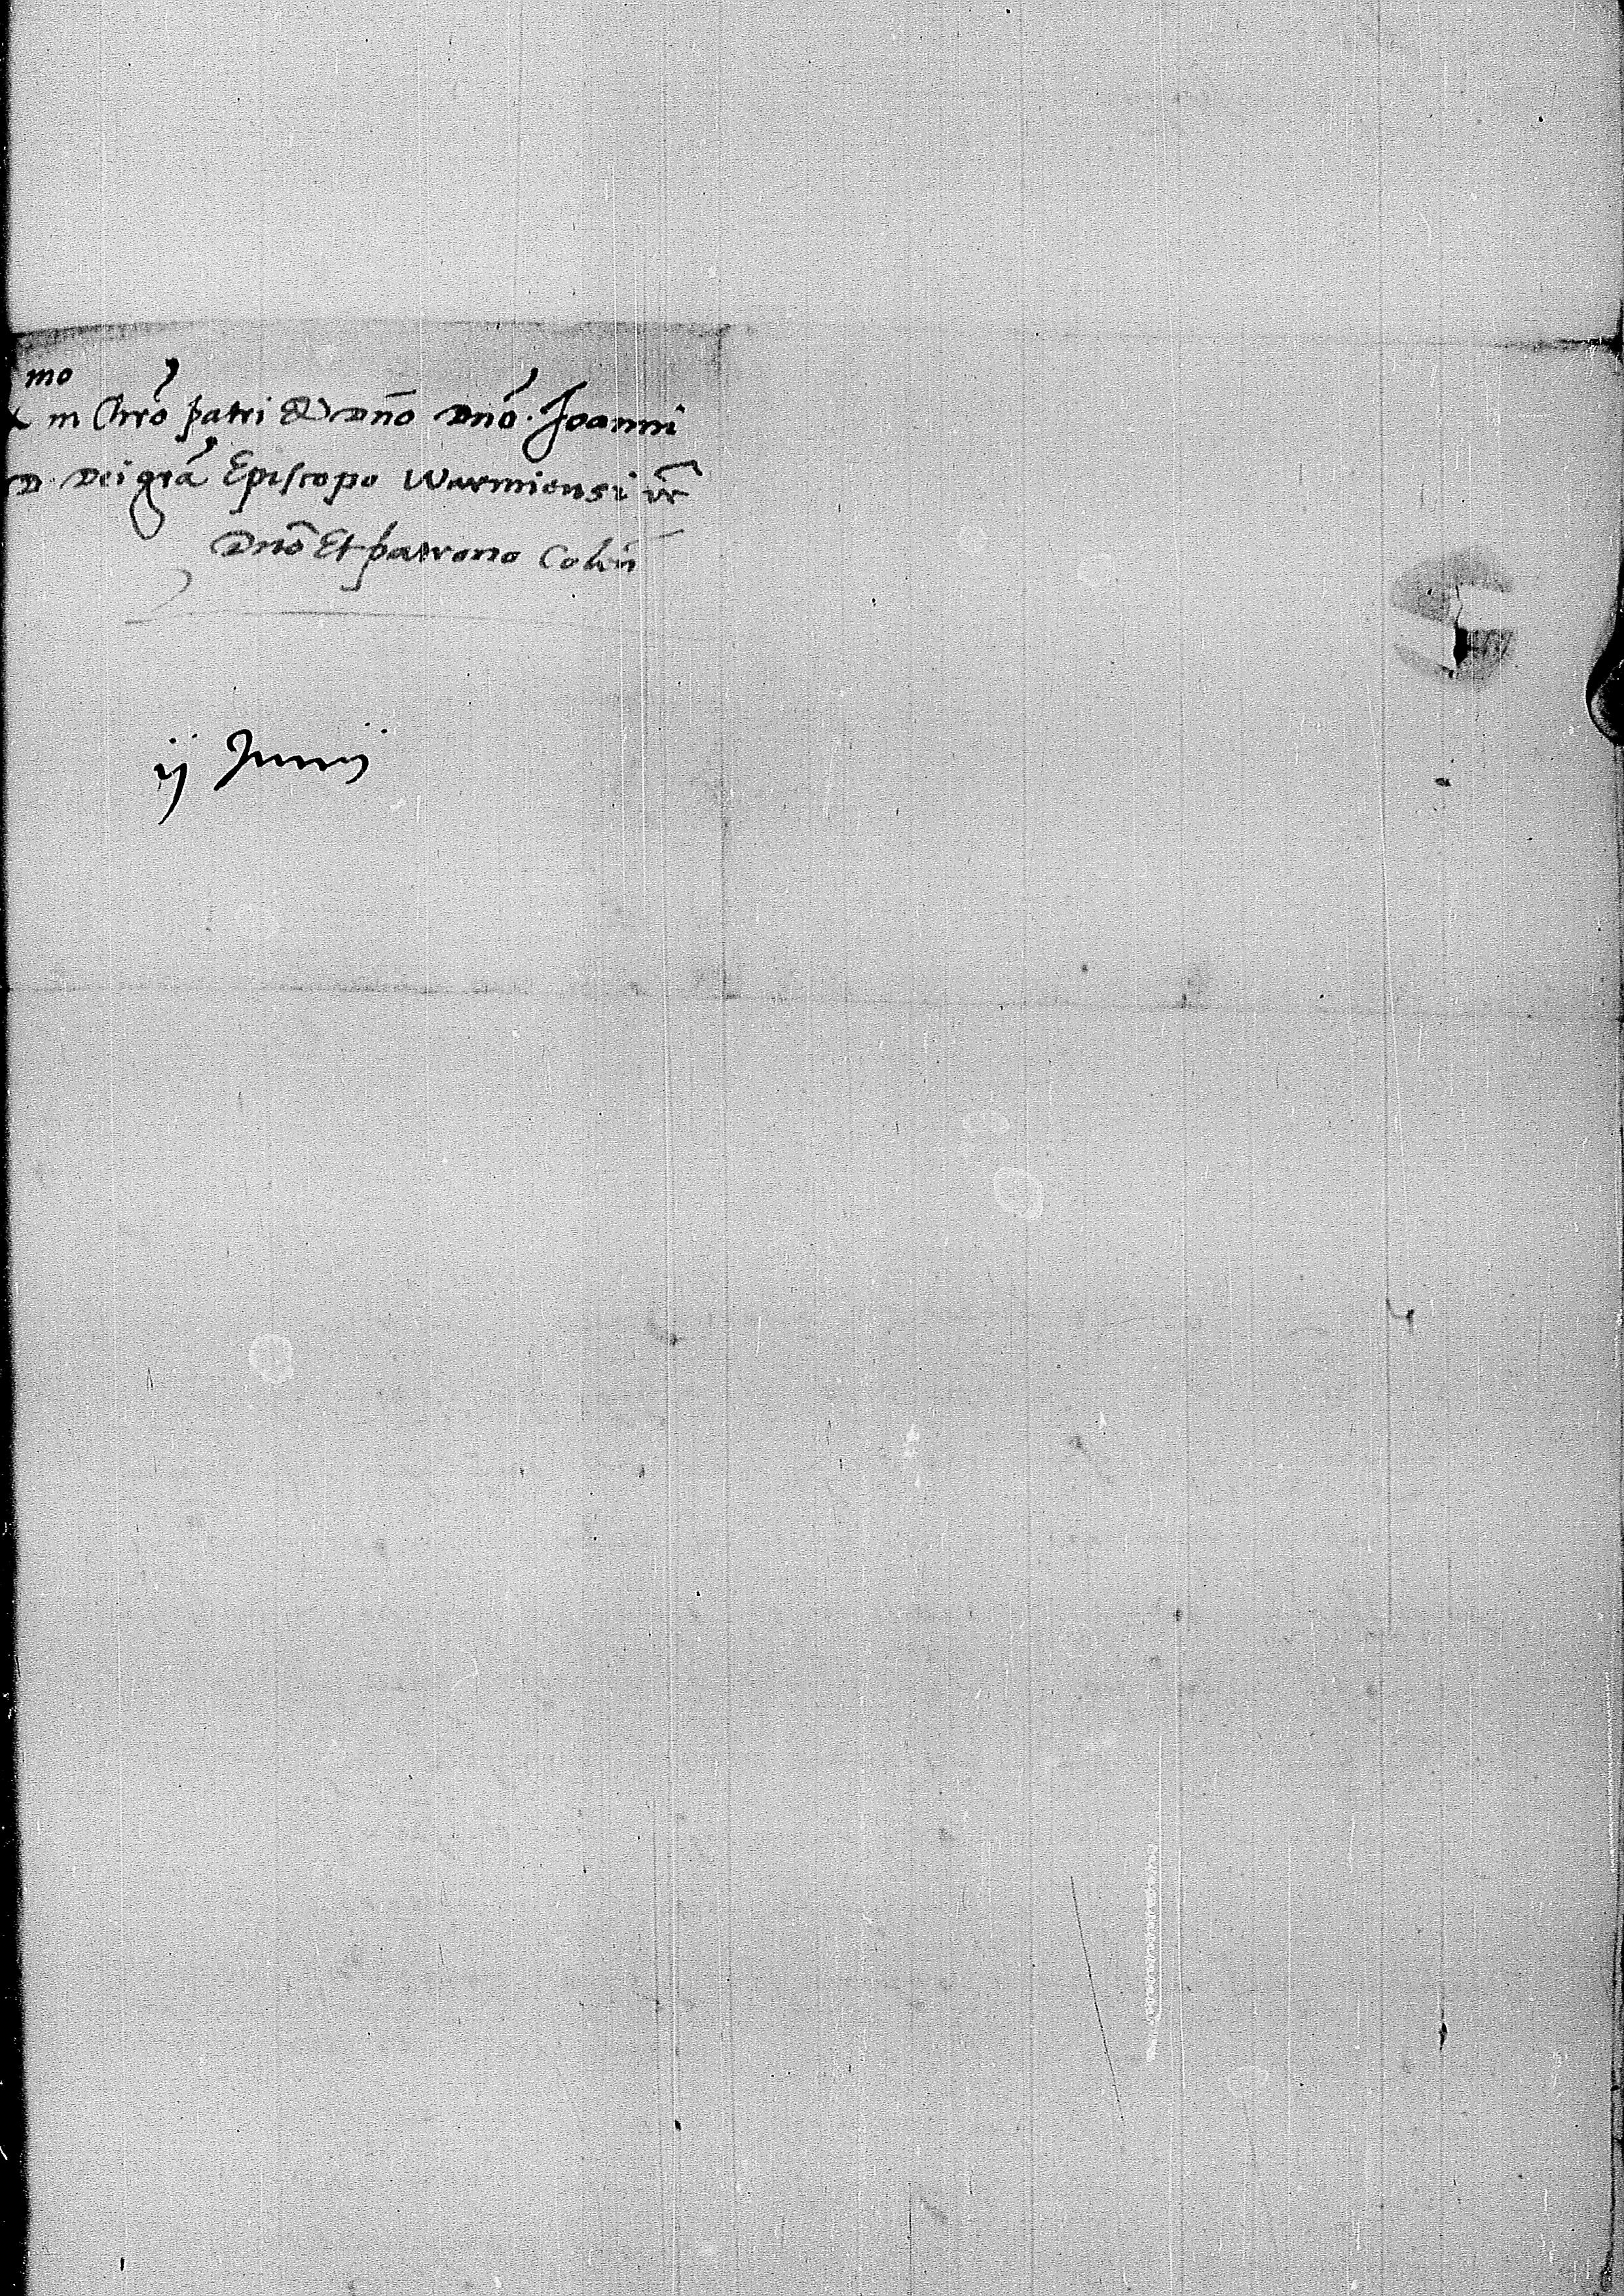 mo
in Chrō patri & Dno Dno. Joanni
D. Dei grā Episcopo Warmiensi
Dno Et patrono Colen
ij Junij